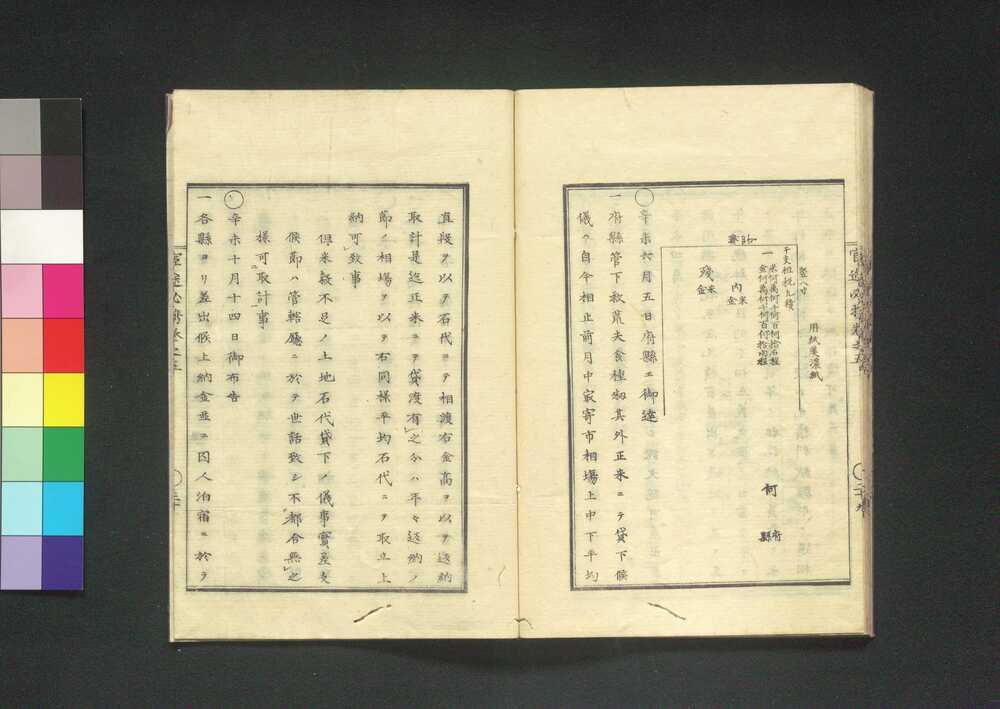 用紙美濃紙
竪八寸
干支租税九積
一米何萬何千何百何拾石程
金何萬何千何百何拾両程
内
米
金
残
米
金
何
府
縣
辛未六月五日府縣エ御達
一府縣管下救荒夫食種物其外正米ニテ貸下候
儀ヲ自今相止前月中最寄市相場上中下平均
直段ヲ以テ石代ヲテ相渡右金高ヲ以テ返納
取計是迄正米ヲテ貸渡有之分ハ年々返納ノ
節ノ相場ヲ以テ右同様平均石代ニテ取立上
納可致事
但米穀不足ノ土地石代貸下ノ儀事實差支
候節ハ管轄廳ニ於テ世話致シ不都合無之
様可取計事
辛未十月十四日御布告
一各縣ヨリ差出候上納金並ニ囚人泊宿ニ於テ